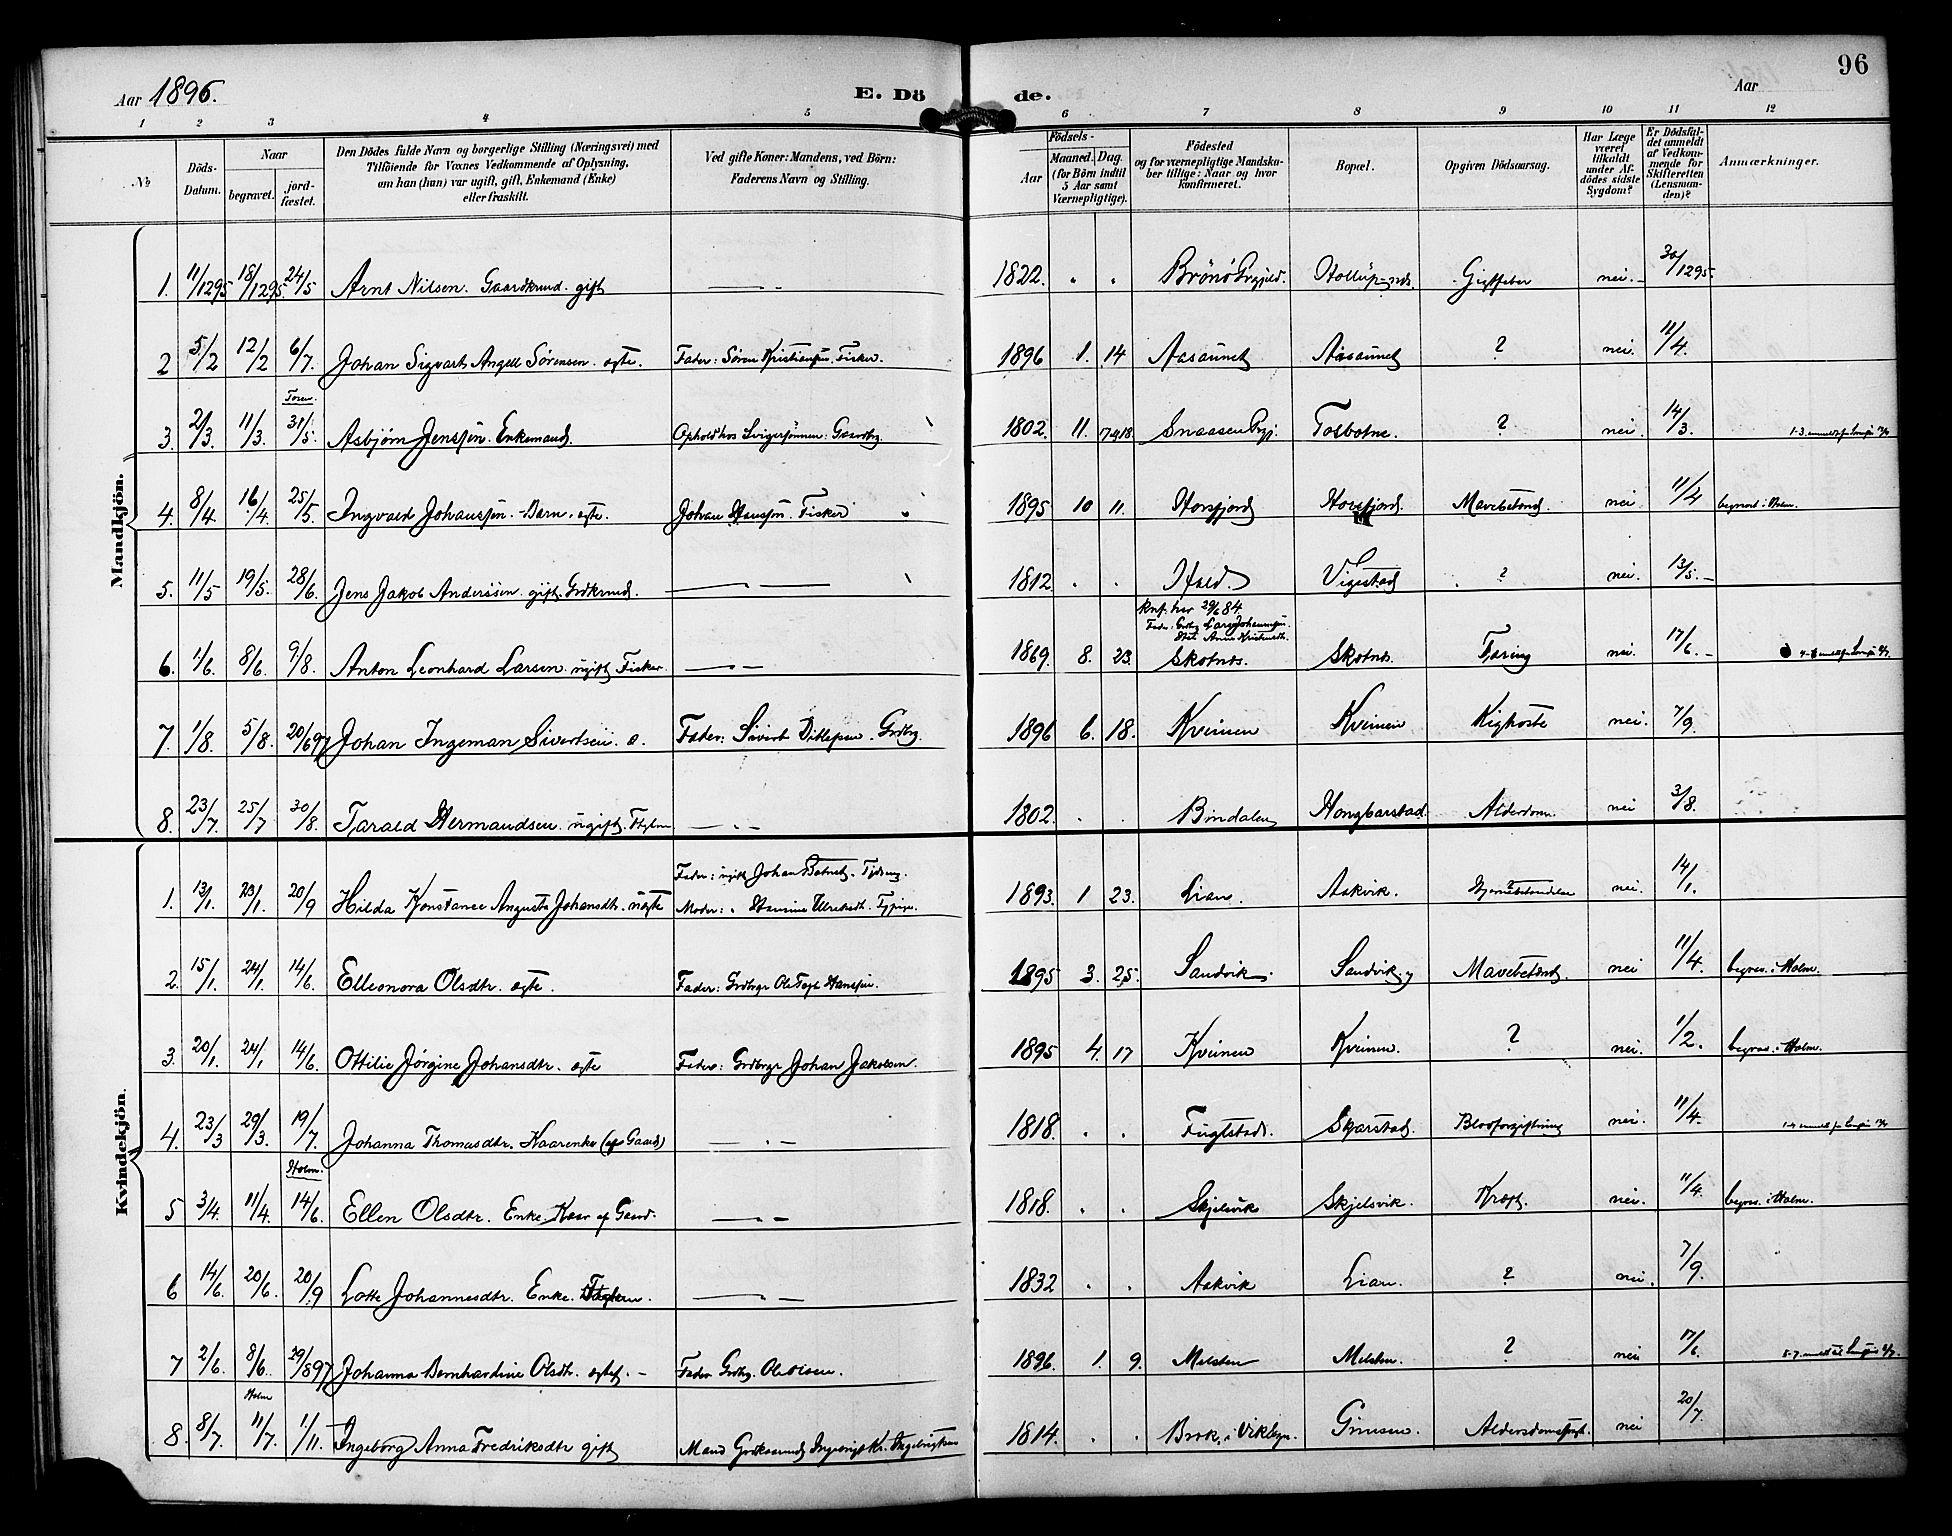 96
Aar 1896.
E. Dö de.
Aar
1 2 3 4 5 6 7 8 9 10 11 12
No
Döds-Datum.
Naar
begravet.
jord-fæstet.
Den Dödes fulde Navn og borgerlige Stilling (Næringsvei) med
Tilföiende for Voxnes Vedkommende af Oplysning,
om han (hun) var ugift, gift, Enkemand (Enke)
eller fraskilt.
Ved gifte Koner: Mandens, ved Börn:
Faderens Navn og Stilling.
Födsels-
Aar
Maaned. Dag.
(for Börn indtil
5 Aar samt
Værnepligtige).
Födested
og for værnepligtige Mandska-
ber tillige: Naar og hvor
konfirmeret.
Bopæl.
Opgiven Dödsaarsag.
Har Læge
været
tilkaldt
under Af-
dödes sidste
Sygdom?
Er Dödsfal-
det anmeldt
af Vedkom-
mende for
Skifteretten
(Lensman-
den)?
Anmærkninger.
Mandkjön.
1. 11/1295 18/1295. 24/5 Arnt Nilsen. Gaardkmd. gift 1822. " " Brönö Prgjeld. Gigtfeber nei. 30/1295
2 5/2 12/2 6/7. Johan Sigvart Angell Sörensen. ægte. Fader: Sören Kristiansen. Fisker. 1896 1. 14 Aasaunet Aasaunet ? nei. 11/4.
3. 2/3. 11/3. 31/5. Asbjörn Jenssen. Enkemand. Ophold hos Svigersönnen: Gaardbg. 1802. 11. Snaasen Prgj. Tosbotne. ? nei. 14/3.
4. 8/4. 16/4. 25/5. Ingvald Johanssen. Barn. ægte. Johan Hanssen. Fisker 1895 10 11. Horsfjord Horsfjord. Mavebetænd. nei 11/4 begravet i Holm.
5. 11/5 19/5. 28/6. Jens Jakob Anderssen. gift. Grdkmd. 1812. . . Hald. Vigestad ? nei. 13/5.
Knf. her 29/6 84.
6. 1/6. 8/6. 9/8. Anton Leonhard Larsen. ugift Fisker. 1869. 8. 23. Skotnes. Skotnes Tæring nei. 17/6.
7. 1/8. 5/8. 20/697 Johan Ingeman Sivertsen. æ. Fader: Sivert Ditlefsen. Grdbg. 1896 6. 18. Kveinen Kveinen Kighoste nei. 7/9.
8. 23/7. 25/7 30/8. Tarald Hermandsen. ugift. 1802. . . Bindalen Hongbarstad. Alderdom nei 3/8.
Kvindekjön.
Fader: ugift Johan
1. 13/1. 20/9 Hilda Konstance Augusta Johansdtr. uægte Moder: 1893. 1 23. Lian. Aakvik. nei. 14/1.
2. 15/1. 24/1. 14/6. Elleonora Olsdtr. ægte. Fader: Grdbrgr Ole 1895 3. 25. Sandvik. Sandvik Mavebetænd. nei 11/4. begrav. i Holm.
3. 20/1. 24/1 14/6. Ottilie Jörgine Johansdtr. ægte Fader: Grdbrgr Johan Jakobsen. 1895 4. 17 Kveinen Kveinen. ? nei. 11/2. begrav. i Holm.
4. 23/3 29/3. 19/7. Johanna Thomasdtr. Kaarenke (af Gaard) 1818. . . Fuglstad. Skarstad. Blodforgiftning nei. 11/4.
Holm.
5 3/4. 11/4. 14/6. Ellen Olsdtr. Enke. Kaar af Gaard. 1818. . . Skjelsvik Skjelsvik. Kræft. nei. 11/4. begrav. i Holm.
6 14/6. 20/6. 20/9 Lotte Johannesdtr. Enke. 1832 . . Aakvik Lian. ? nei. 7/9.
7 2/6. 8/6. 29/897 Johanna Bernhardine Olsdtr. ægte. Fader Grdbg. Ole Olsen. 1896. 1. 9. Melsten Melsten. ? nei 17/6.
Holm
8. 8/7. 11/7. 1/11. Ingeborg Anna Fredriksdtr gift 1814. . . nei 20/7.